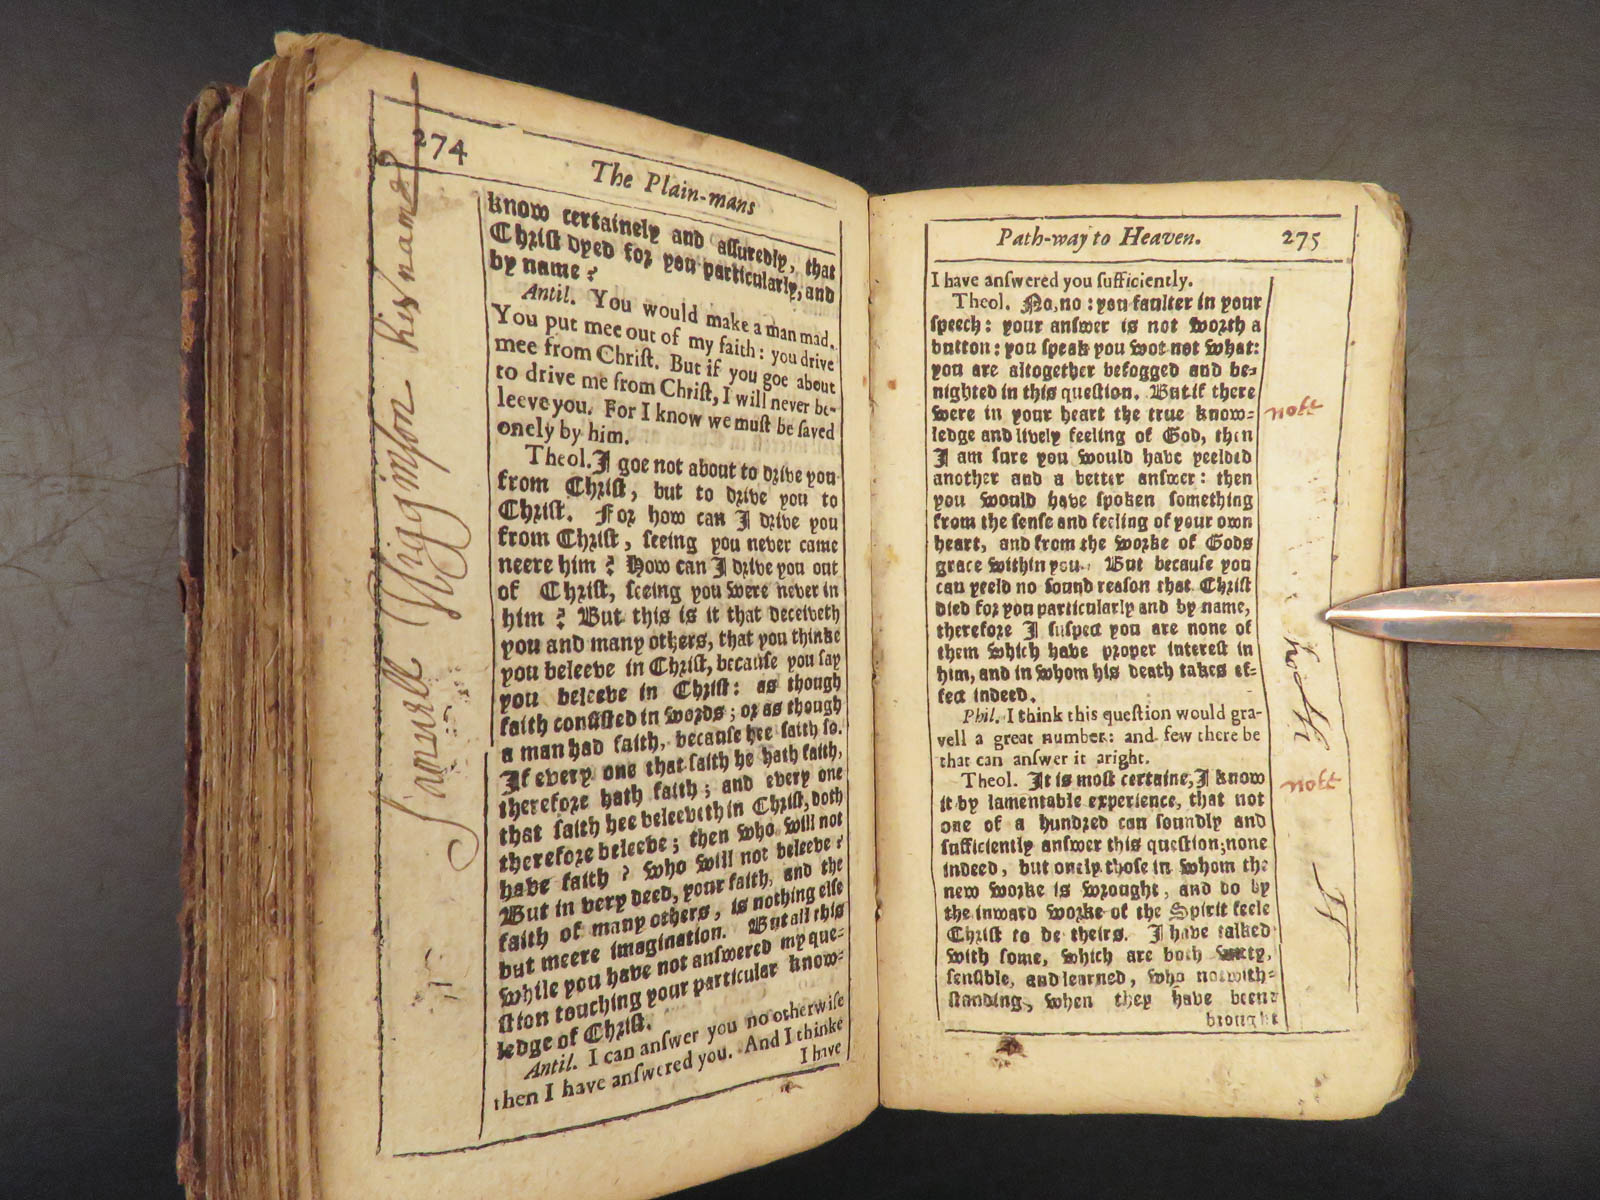 274
The Plain-mans
know certainely and aſſuredly, that
Chriſt dyed for you particularly, and
by name?
Antil. You would make a man mad.
You put mee out of my faith: you drive
mee from Chriſt. But if you goe about
to drive me from Chriſt, I will never be-
leeve you. For I know we muſt be ſaved
onely by him.
Theol. I goe not about to drive you
from Chriſt, but to drive you to
Chriſt. For how can I drive you
from Chriſt, ſeeing you never came
neere him? How can I drive you out
of Chriſt, ſeeing you were never in
him? But this is it that deceiveth
you and many others, that you thinke
you beleeve in Chriſt, becauſe you ſay
you beleeve in Chriſt: as though
faith conſiſted in words; or as though
a man had faith, becauſe hee ſaith ſo.
If every one that ſaith he hath faith,
therefore hath faith; and every one
that ſaith hee beleeveth in Chriſt, doth
therefore beleeve; then who will not
have faith? Who will not beleeve?
But in very deed, your faith, and the
faith of many others, is nothing elſe
but meere imagination. But all this
while you have not anſwered my que-
ſtion touching your particular know-
ledge of Chriſt.
Antil. I can anſwer you no otherwiſe
then I have anſwered you. And I thinke
I have
Samuell Higginson his name
Path-way to Heaven.
275
I have anſwered you ſufficiently.
Theol. No, no: you faulter in your
ſpeech: your anſwer is not worth a
button: you ſpeak you wot not what:
you are altogether befogged and be-
nighted in this queſtion. But if there
were in your heart the true know-
ledge and lively feeling of God, then
I am ſure you would have yeelded
another and a better anſwer: then
you would have ſpoken ſomething
from the ſenſe and feeling of your own
heart, and from the worke of Gods
grace within you. But becauſe you
can yeeld no ſound reaſon that Chriſt
died for you particularly and by name,
therefore I ſuſpect you are none of
them which have proper intereſt in
him, and in whom his death takes ef-
fect indeed.
Phil. I think this queſtion would gra-
vell a great number: and few there be
that can anſwer it aright.
Theol. It is moſt certaine, I know
it by lamentable experience, that not
one of a hundred can ſoundly and
ſufficiently anſwer this queſtion; none
indeed, but onely thoſe in whom the
new worke is wrought, and do by
the inward worke of the Spirit feele
Chriſt to be theirs. I have talked
with ſome, which are both witty,
ſenſible, and learned, who notwith-
ſtanding, when they have beene
brought
note
note